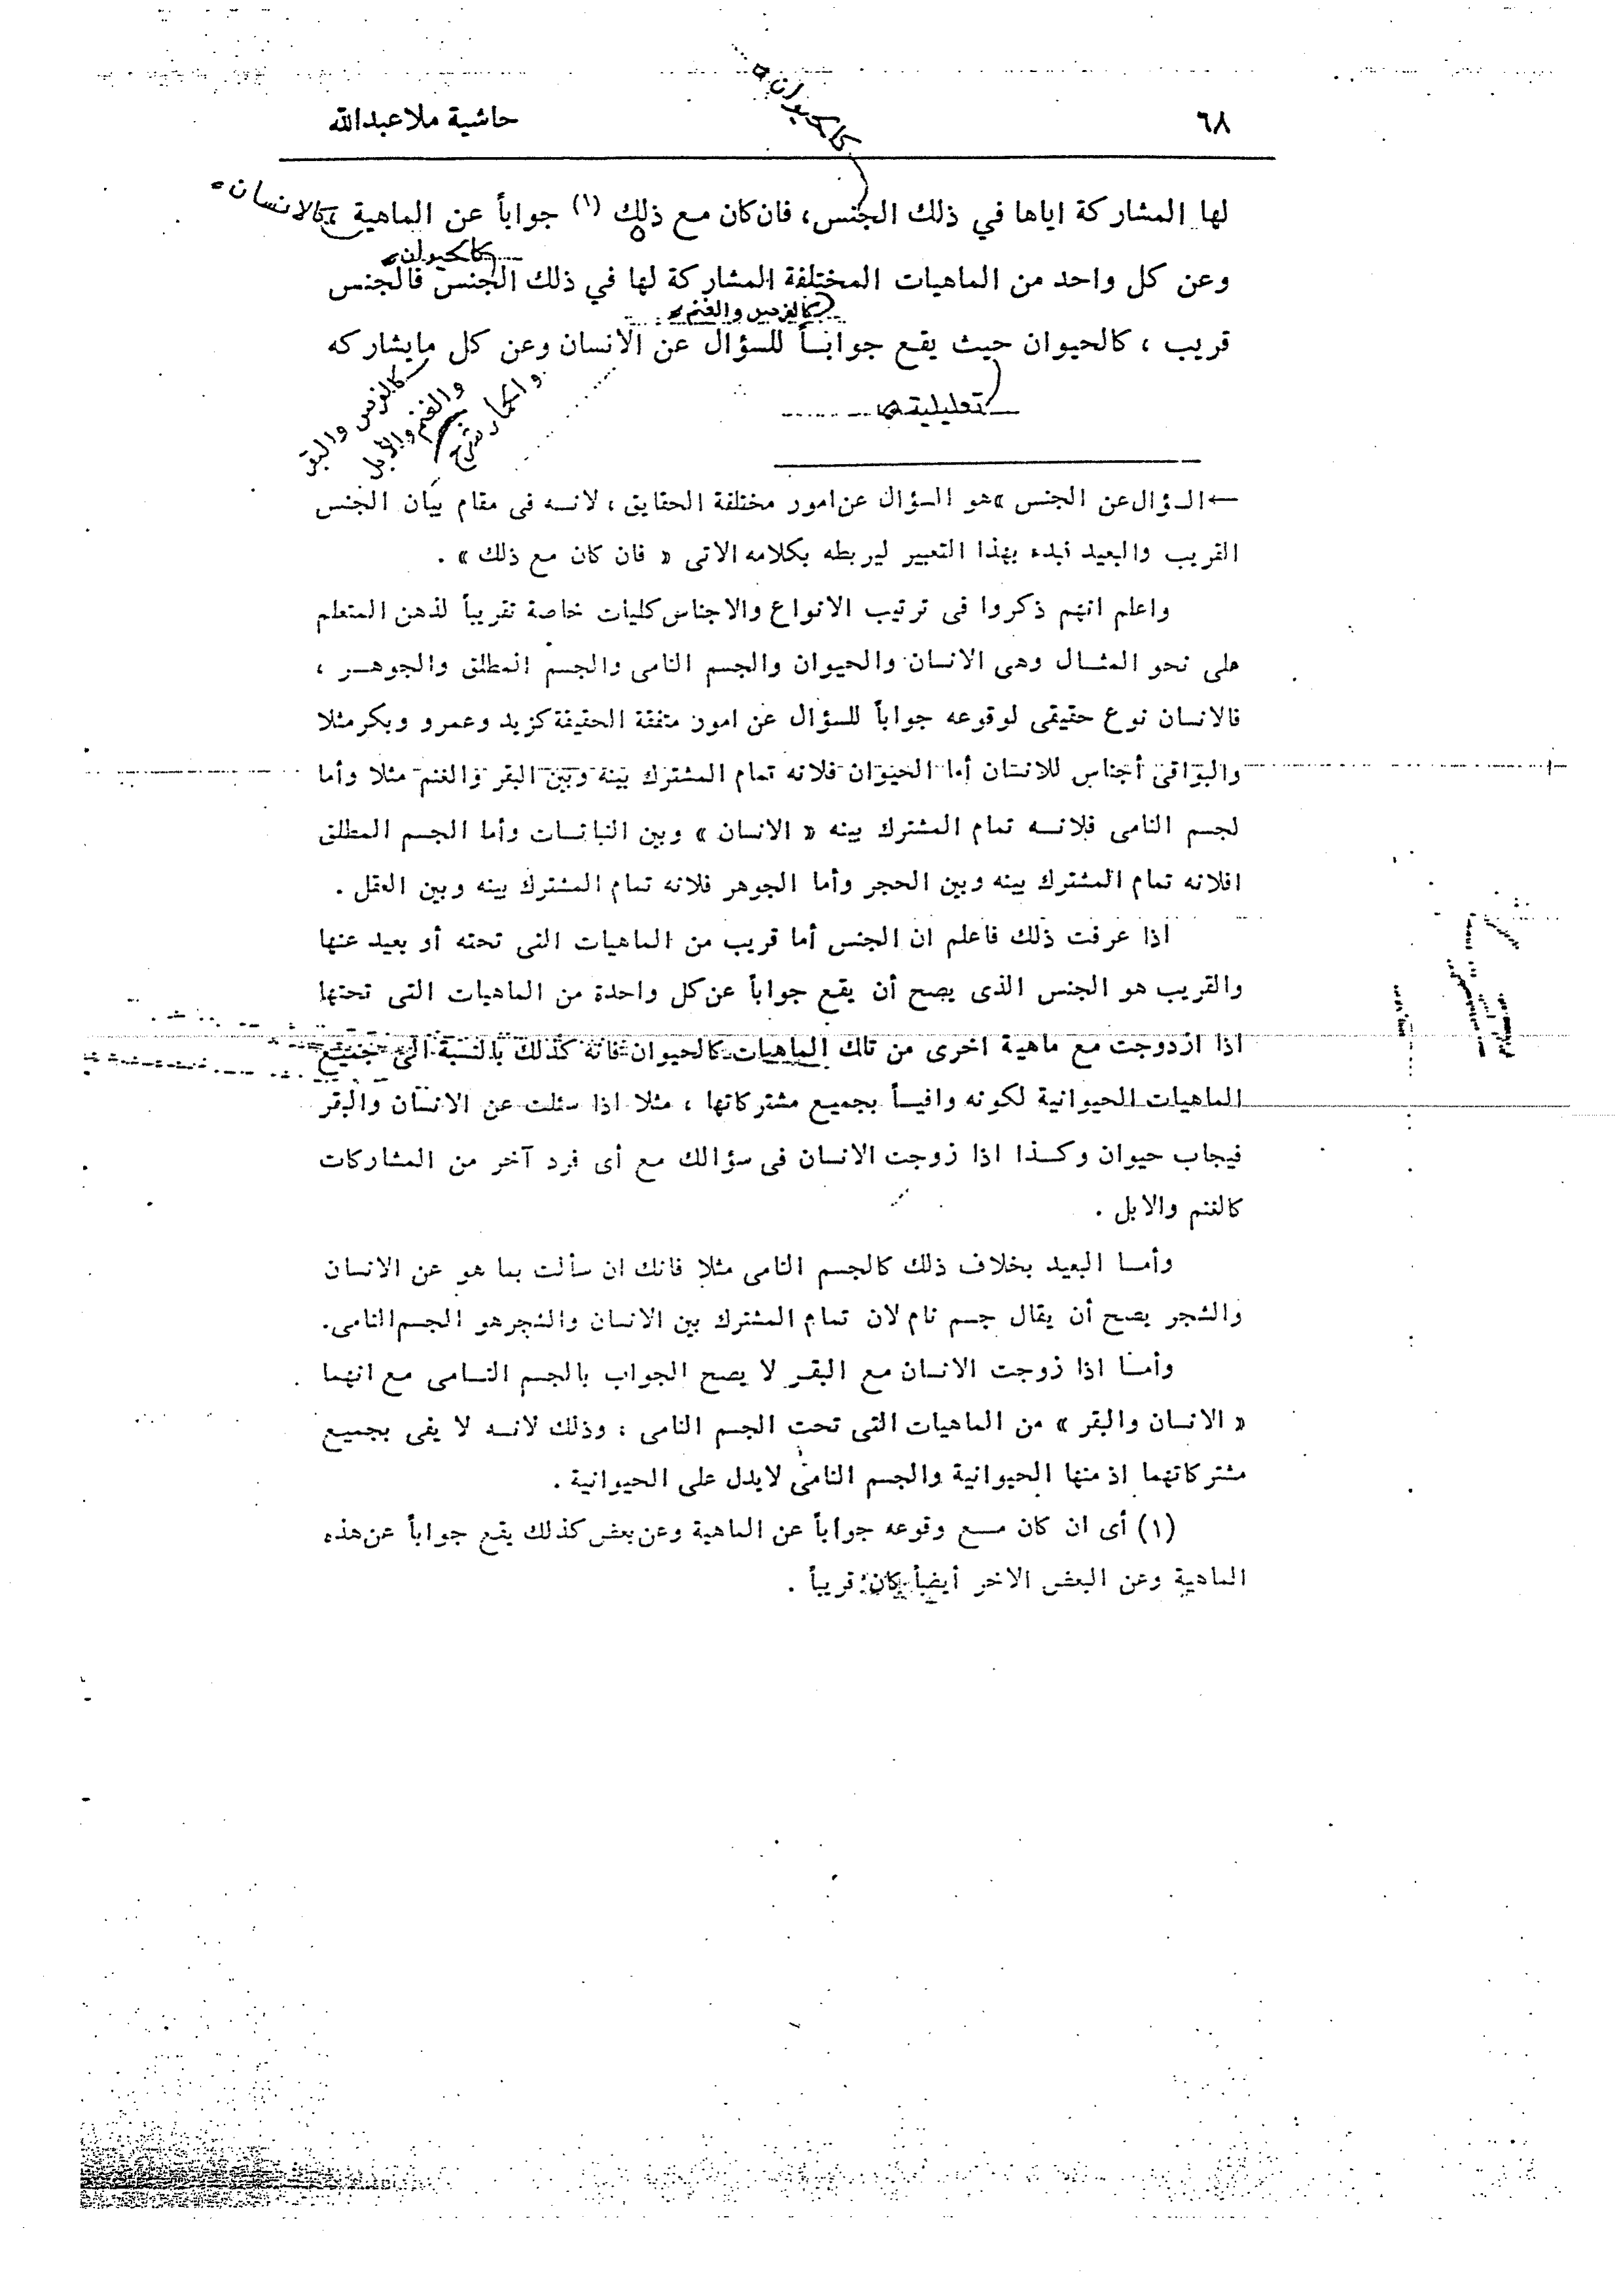 ٦٨
حاشية ملاعبدالله
كالحيوان
لها المشاركة اياها في ذلك الجنس، فان كان مع ذلك (١) جواباً عن الماهية
كالانسان
كالحيوان
وعن كل واحد من الماهيات المختلفة المشاركة لها في ذلك الجنس فالجنس
كالفرس والغنم
قريب ، كالحيوان حيث يقع جوابـاً للسؤال عن الانسان وعن كل مايشاركه
تعليلية
كالفرس والبقر
والغنم والابل
والحمار
← السؤال عن الجنس » هو السؤال عن امور مختلفة الحقايق ، لانـه فى مقام بيان الجنس
القريب والبعيد نبده بهذا التعبير ليربطه بكلامه الاتى « فان كان مع ذلك » .
واعلم انهم ذكروا فى ترتيب الانواع والاجناس كليات خاصة تقريباً لذهن المتعلم
على نحو المثـال وهى الانسان والحيوان والجسم النامى والجسم المطلق والجوهـر ،
فالانسان نوع حقيقى لوقوعه جواباً للسؤال عن امور متفقة الحقيقة كزيد وعمرو وبكر مثلا
والبواقى أجناس للانسان أما الحيوان فلانه تمام المشترك بينه وبين البقر والغنم مثلا وأما
لجسم النامى فلانـه تمام المشترك بينه « الانسان » وبين النباتـات وأما الجسم المطلق
افلانه تمام المشترك بينه وبين الحجر وأما الجوهر فلانه تمام المشترك بينه وبين العقل .
اذا عرفت ذلك فاعلم ان الجنس أما قريب من الماهيات التى تحته أو بعيد عنها
والقريب هو الجنس الذى يصح أن يقع جواباً عن كل واحدة من الماهيات التى تحتها
اذا ازدوجت مع ماهية اخرى من تلك الماهيات كالحيوان فانه كذلك بالنسبة الى جميع
الماهيات الحيوانية لكونه وافيـاً بجميع مشتركاتها ، مثلا اذا سئلت عن الانسان والبقر
فيجاب حيوان وكـذا اذا زوجت الانسان فى سؤالك مع أى فرد آخر من المشاركات
كالغنم والابل .
وأمـا البعيد بخلاف ذلك كالجسم النامى مثلا فانك ان سألت بما هو عن الانسان
والشجر يصح أن يقال جسم نام لان تمام المشترك بين الانسان والشجر هو الجسم النامى.
وأمـا اذا زوجت الانسان مع البقـر لا يصح الجواب بالجسم النـامى مع انهما
« الانسان والبقر » من الماهيات التى تحت الجسم النامى ؛ وذلك لانـه لا يفى بجميع
مشتركاتهما اذ منها الحيوانية والجسم النامى لايدل على الحيوانية .
(١) أى ان كان مـع وقوعه جواباً عن الماهية وعن بعض كذلك يقع جواباً عن هذه
الماهية وعن البعض الاخر أيضاً كان قريباً .